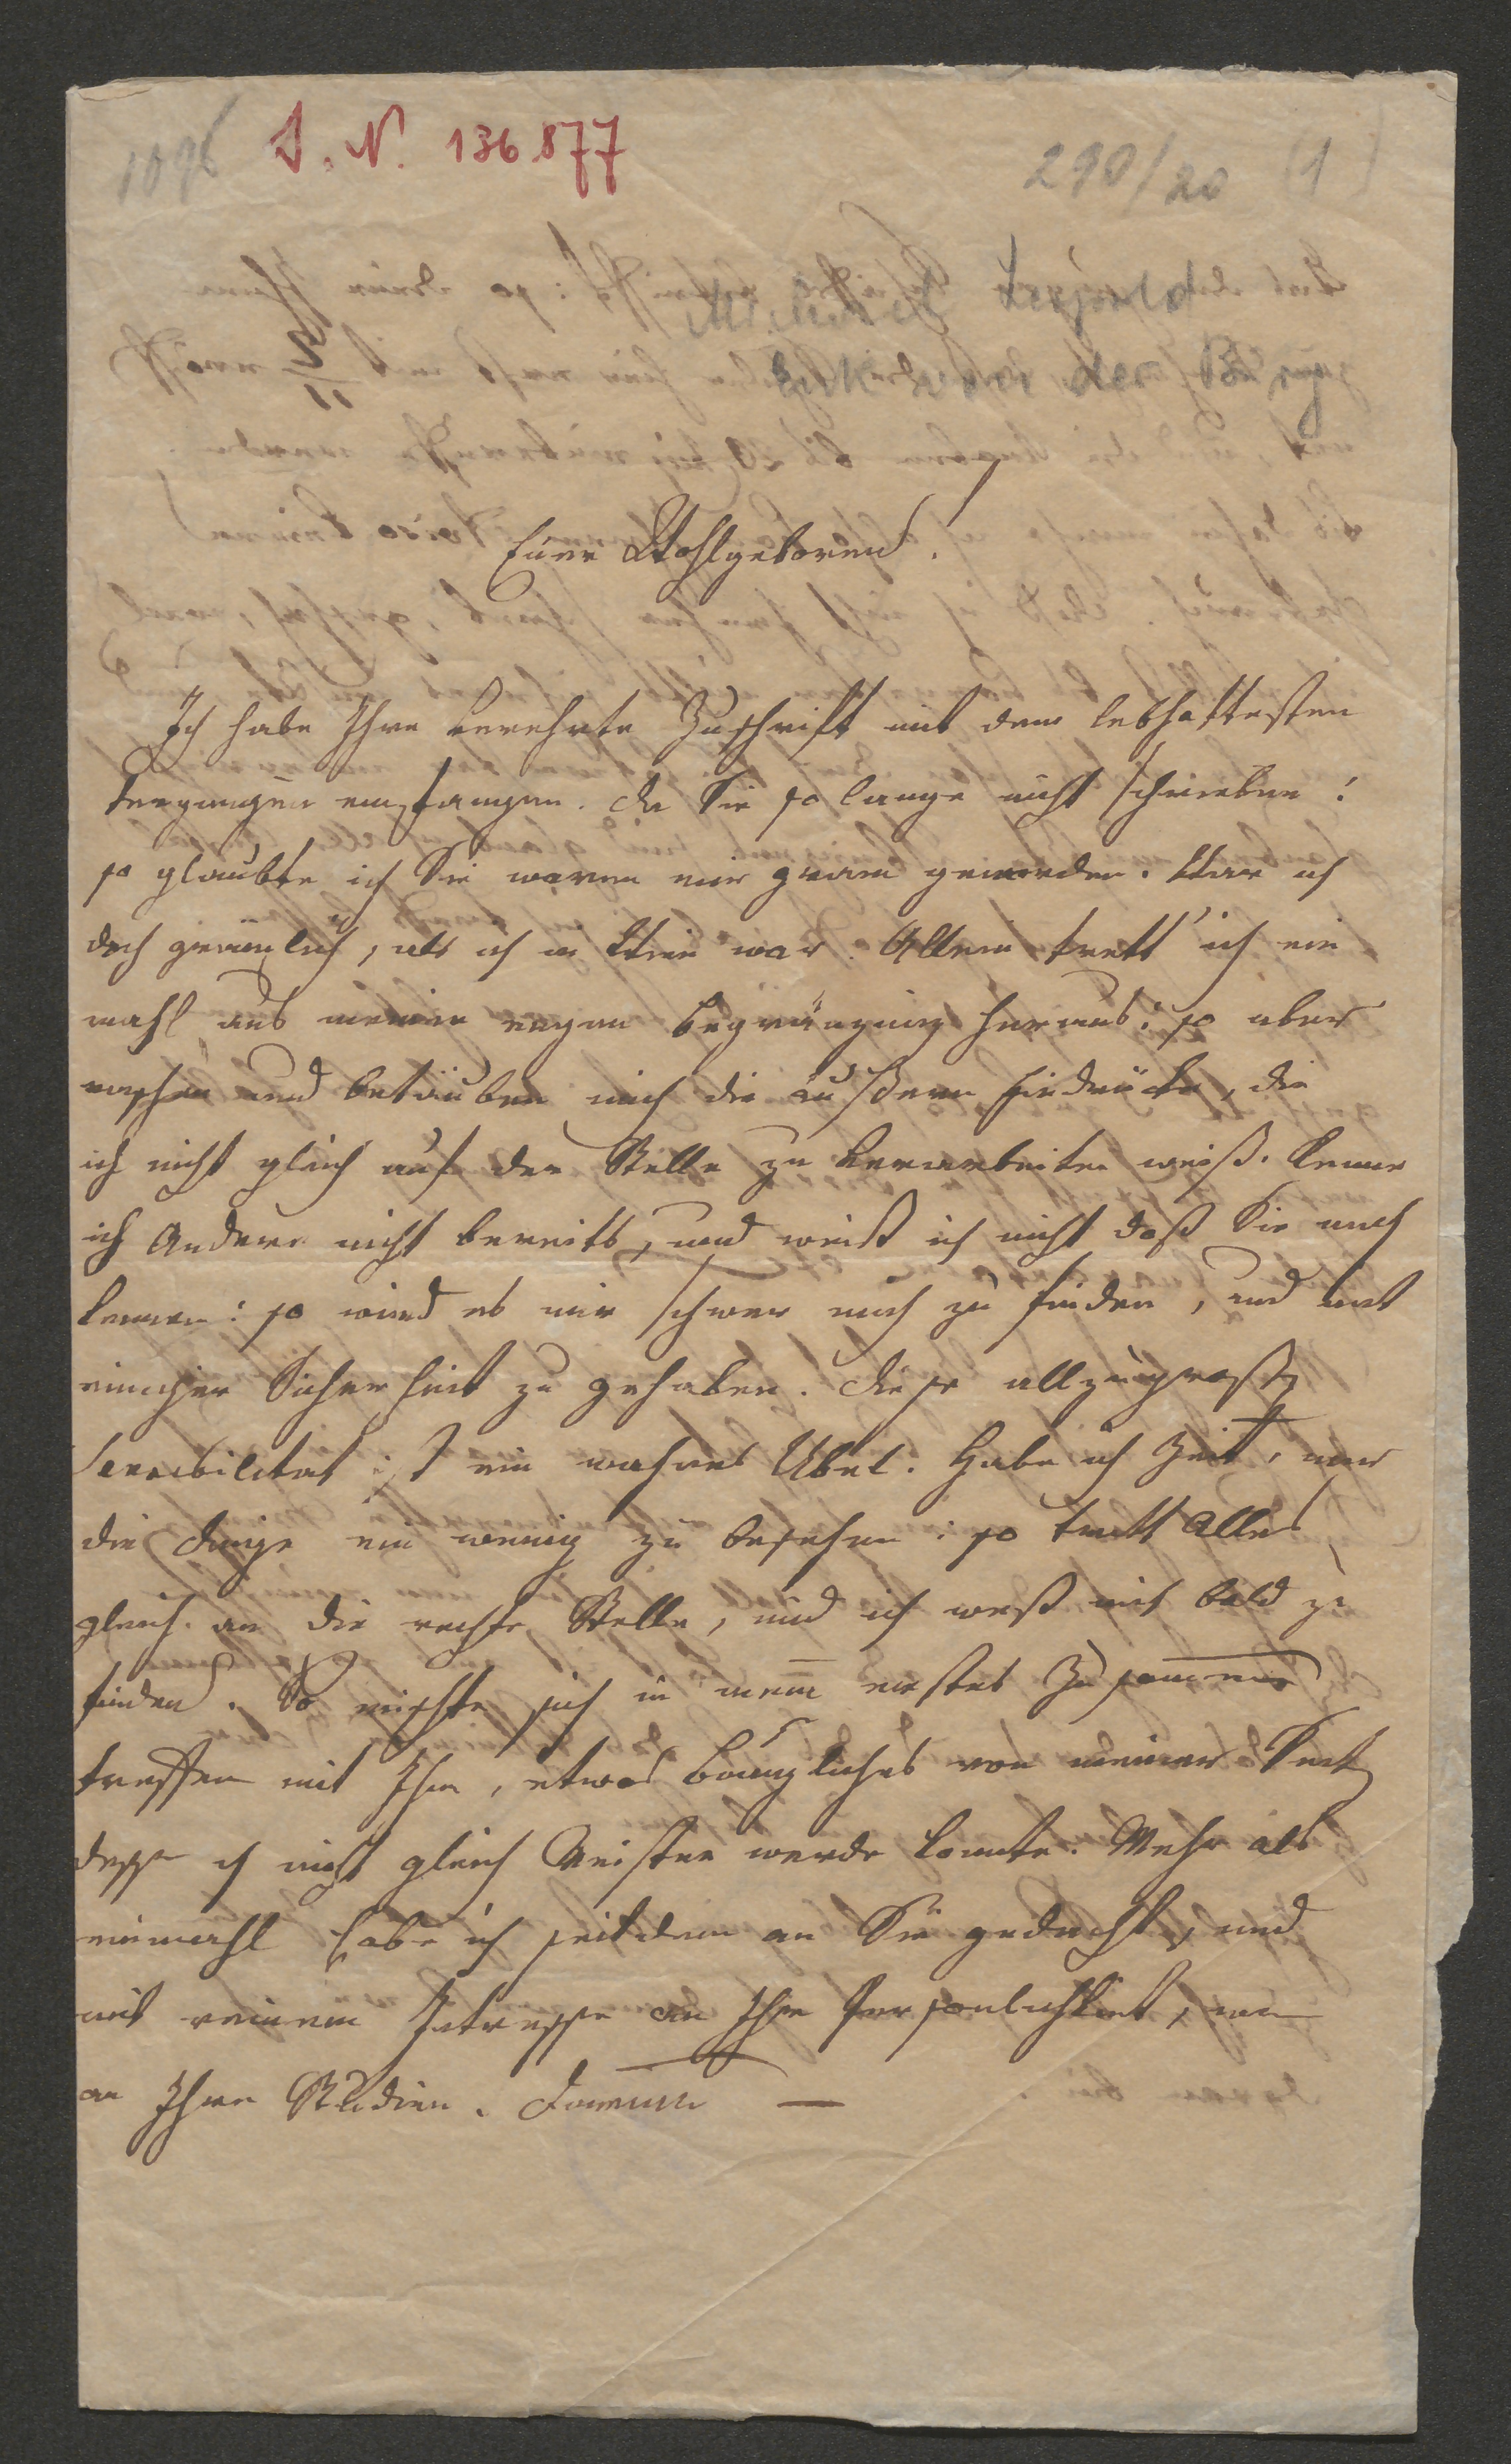 1096 I. N. 136.877 290/20 (1)
Michael Leopold
Enk von der Burg
Euer Wohlgeboren!
Ich habe Ihre verehrte Zuschrift mit dem lebhaftesten
Vergnügen empfangen. Da Sie so lange nicht schrieben:
so glaubte ich Sie wären mir gram geworden. War ich
doch grämlich, als ich in Wien war. Allein trett' ich ein
mahl aus meiner engen Begränzung heraus: so über
raschen und betäuben mich die äußern Eindrücke, die
ich nicht gleich auf der Stelle zu verarbeiten weiß. Kenne
ich Andere nicht bereits, und weiß ich nicht daß Sie mich
kennen: so wird es mir schwer mich zu finden, und mit
einiger Sicherheit zu gehaben. Diese allzugroße
Sensibilität ist ein wahres Übel. Habe ich Zeit, nur
die Dinge ein wenig zu besehen: so tritt Alles
gleich an die rechte Stelle, und ich weß mich bald zu
finden. So mischte sich in mein erstes Zusammen
treffen mit Ihn, etwas bängliches von meiner Seit
dessen ich nicht gleich Meister werde konnte. Mehr als
einmahl habe ich seitdem an Sie gedacht, und
mit reinem Intresse an Ihre Persönlichkeit, wie
an Ihren Studien. —